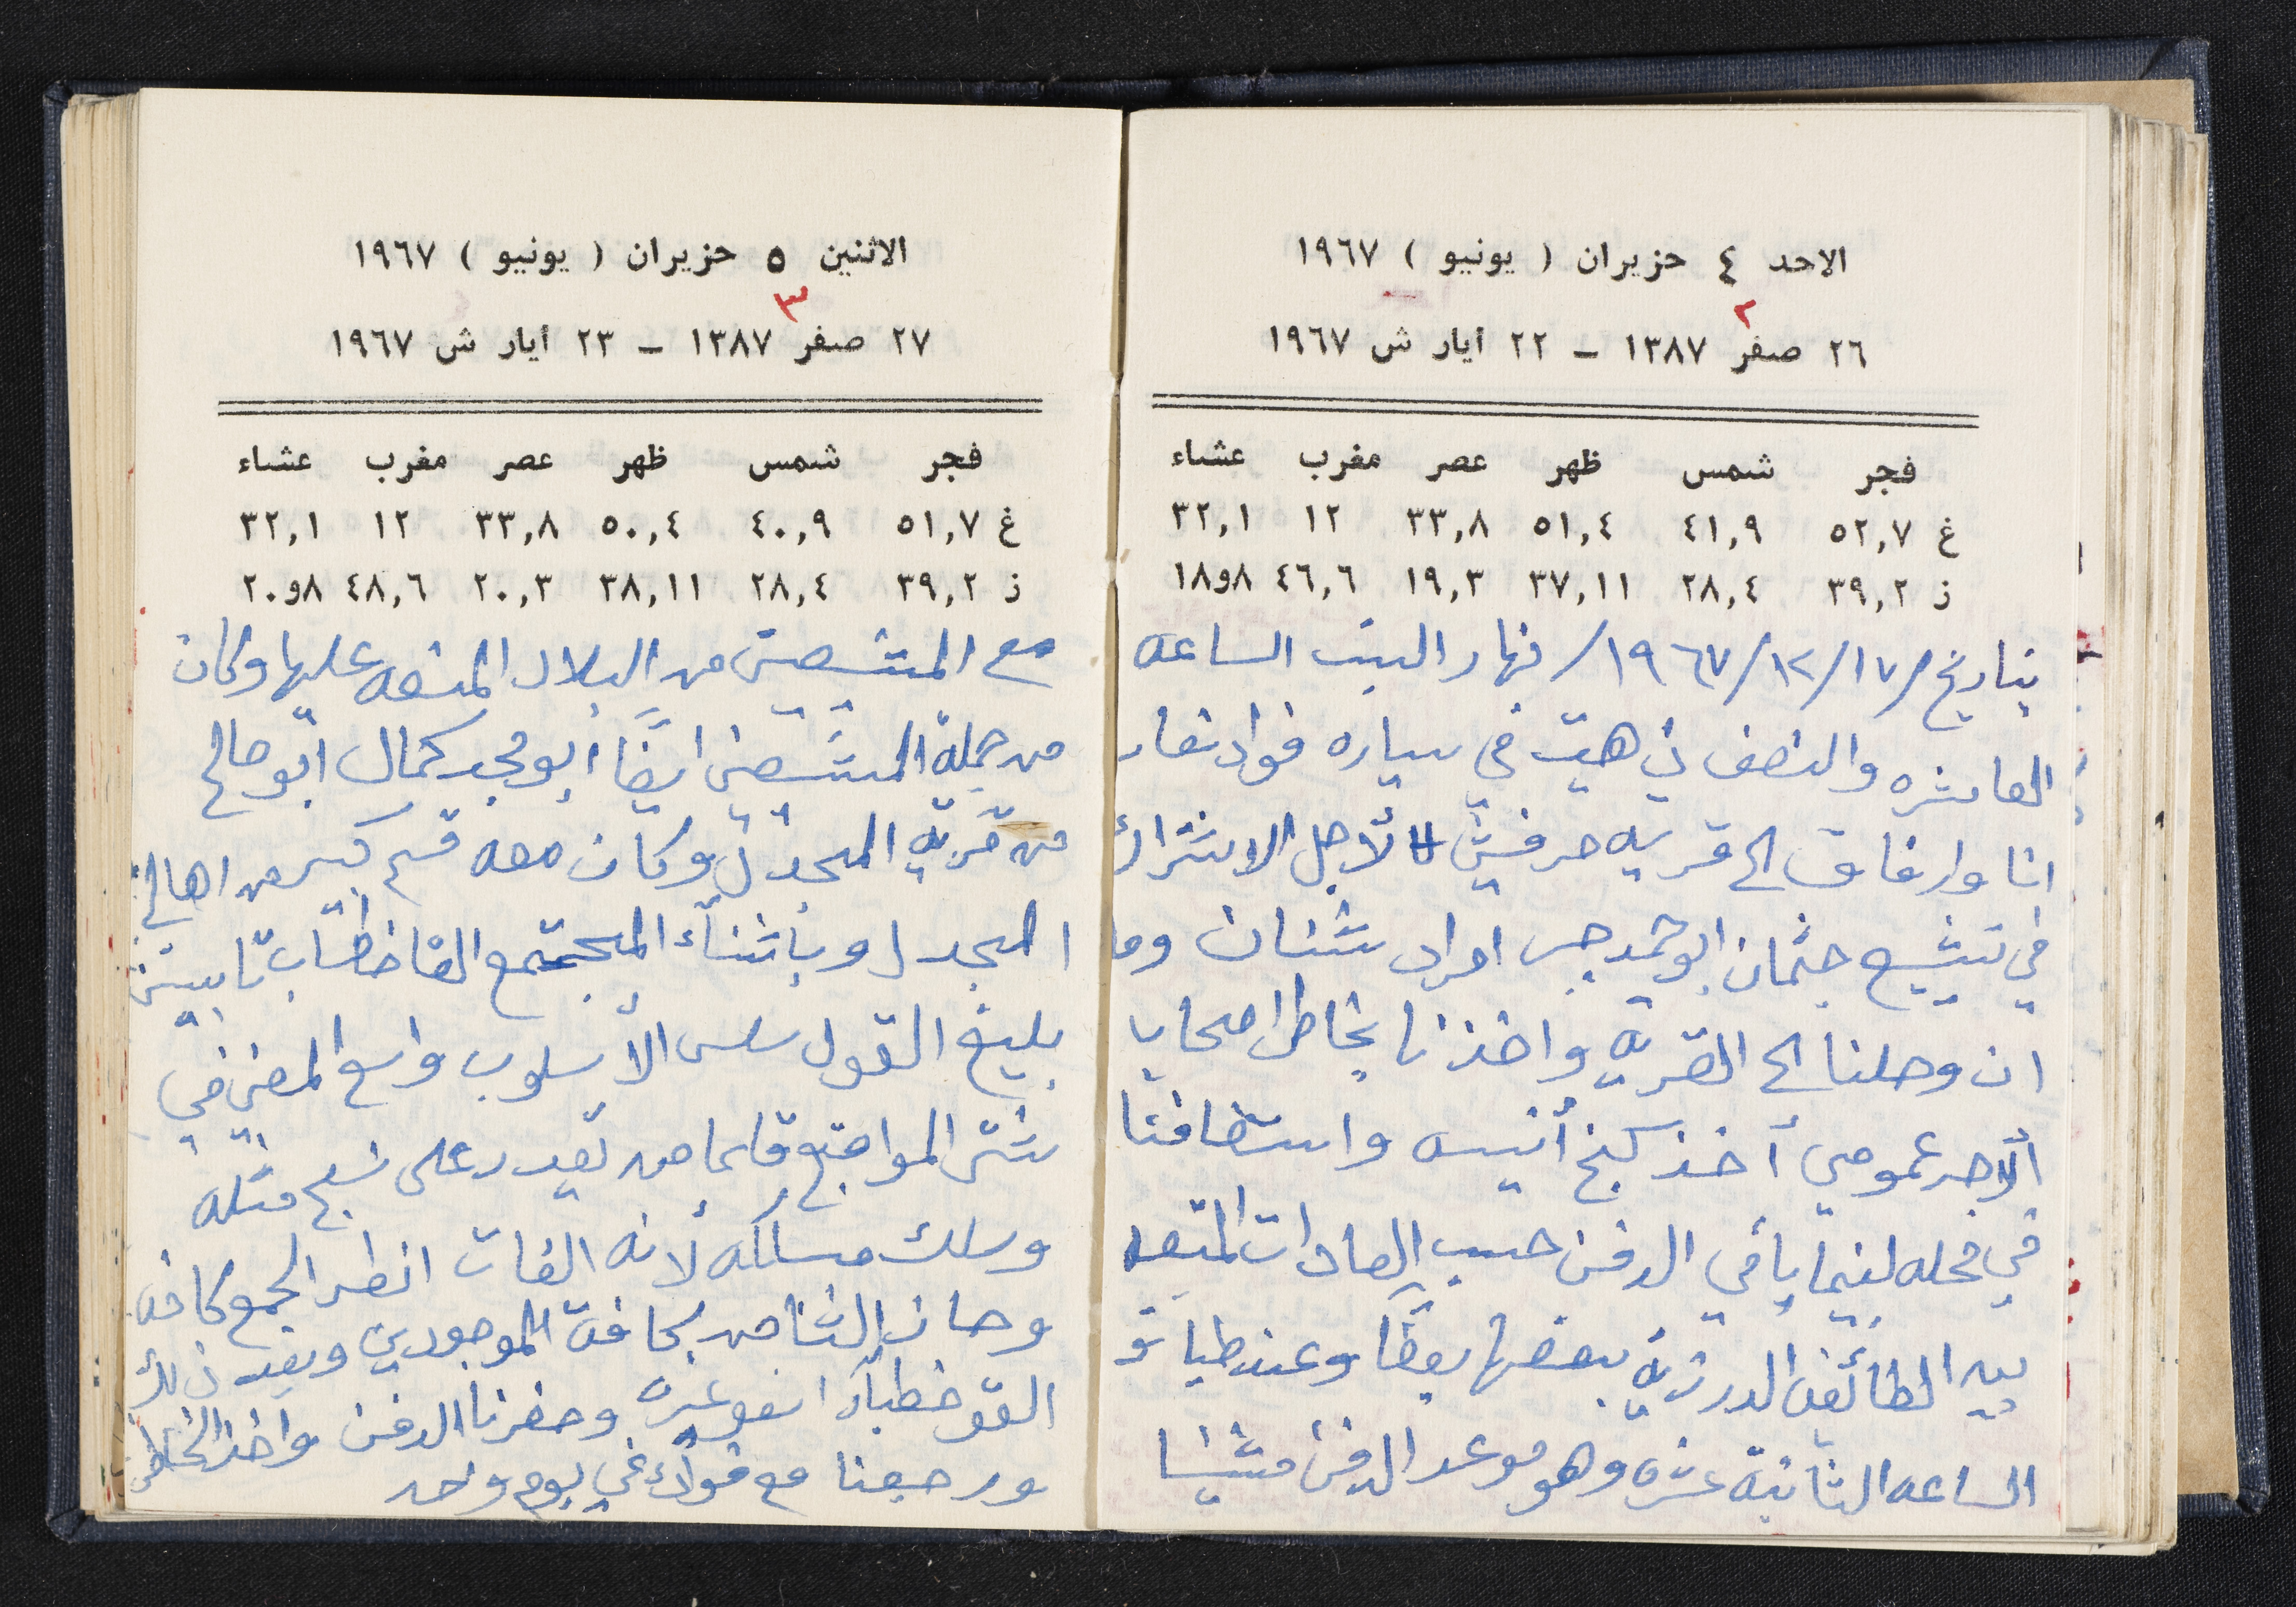 الاحد ٤ حزيران ( يونيو ) ١٩٦٧
٢
٢٦ صفر ١٣٨٧ – ٢٢ أيار ش ١٩٦٧
فجر شمس ظهر عصر مغرب عشاء
غ ٥٢,٧ ٤١,٩ ٥١,٤ ٣٣,٨ ١٢ ٣٢,١
ز ٣٩,٢ ٢٨,٤ ٣٧,١١ ١٩,٣ ٤٦,٦ ٨و١٨
بتاريخ /١٧/١٢/١٩٦٧/ نهار السبت الساعه
العاشره والنصف ذهبت في سياره فواد نفاع
انا وارفاق الى قريه حرفيش لأجل الاشتراك
في تشييع جثمان ابو حمد جبر افراد شنان وما
ان وصلنا الى القريه واخذنا بخاطر اصحاب
ألأجر عمومي أخذ كنج أنيس واستضافنا
في محله لبينما يأتي الدفن حسب العادات المتبعه
بين الطائفه الدرزيه بعضها بعضًا وعند
الساعه الثانية عشره وهو موعد الدفن مشينا
الاثنين ٥ حزيران ( يونيو ) ١٩٦٧
٣
٢٧ صفر ١٣٨٧ – ٢٣ أيار ش ١٩٦٧
فجر شمس ظهر عصر مغرب عشاء
غ ٥١,٧ ٤٠,٩ ٥٠,٤ ٣٣,٨ ١٢ ٣٢,١
ز ٣٩,٢ ٢٨,٤ ٣٨,١١ ٢٠,٣ ٤٨,٦ ٨و٢٠
مع المشيعين من البلاد عليها وكان
من جملة المشيعين ايضًا ابو مجيد كمال ابو صالح
من قرية المجدل وكان معه قسم كبير من اهالي
المجدل وبأثناء المجتمع القا خطاب تأبيني
بليغ القول سلس الأسلوب واسع المغزى في
نثر المواضيع قلما من يقدر على نسج مثله
وسلك مسلكه لأنه الفات انظر الجمع كافه
وحاز الثنا من كافة الموجودين وبعد ذلك
القو خطباء غيره وحضرنا الدفن واخذ الخاطر
ورجعنا مع فواد في يوم واحد